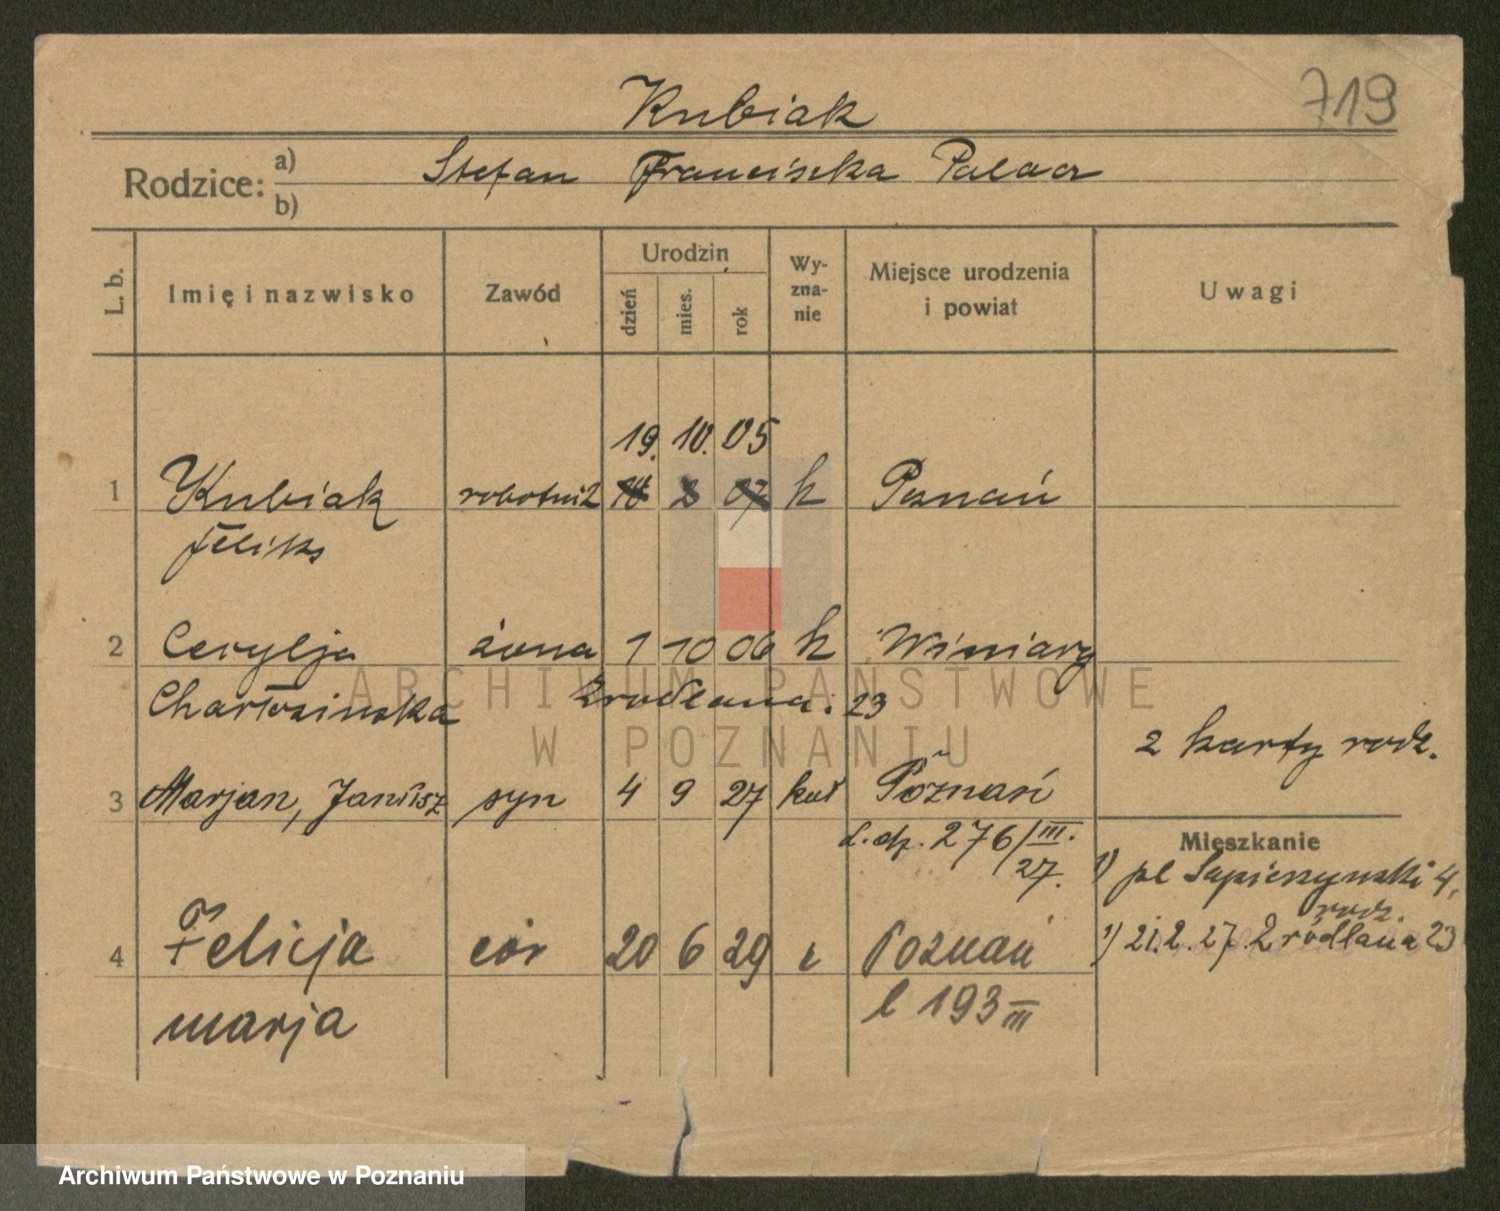 719
Kubiak
Rodzice: a) b) Stefan Franciszka Palacz
L. b. Imię i nazwisko Zawód Urodzin dzień mies. rok Wyznanie Miejsce urodzenia i powiat Uwagi
19. 10. 05
1 Kubiak robotnik k Poznań
Feliks
2 Cerylja żona 1 10 06 k Winiary
23
2 karty rodz.
3 Marjan, Janusz syn 4 9 27 kat Poznań
276/III.
27.
Mieszkanie
1) pl Sapieżyński 4,
rodz.
21.2.27. Źródlana 23
4 Felicja cór 20 6 29 Poznań
Marja
l 193 III
ARCHIWUM PAŃSTWOWE
W POZNANIU
Archiwum Państwowe w Poznaniu